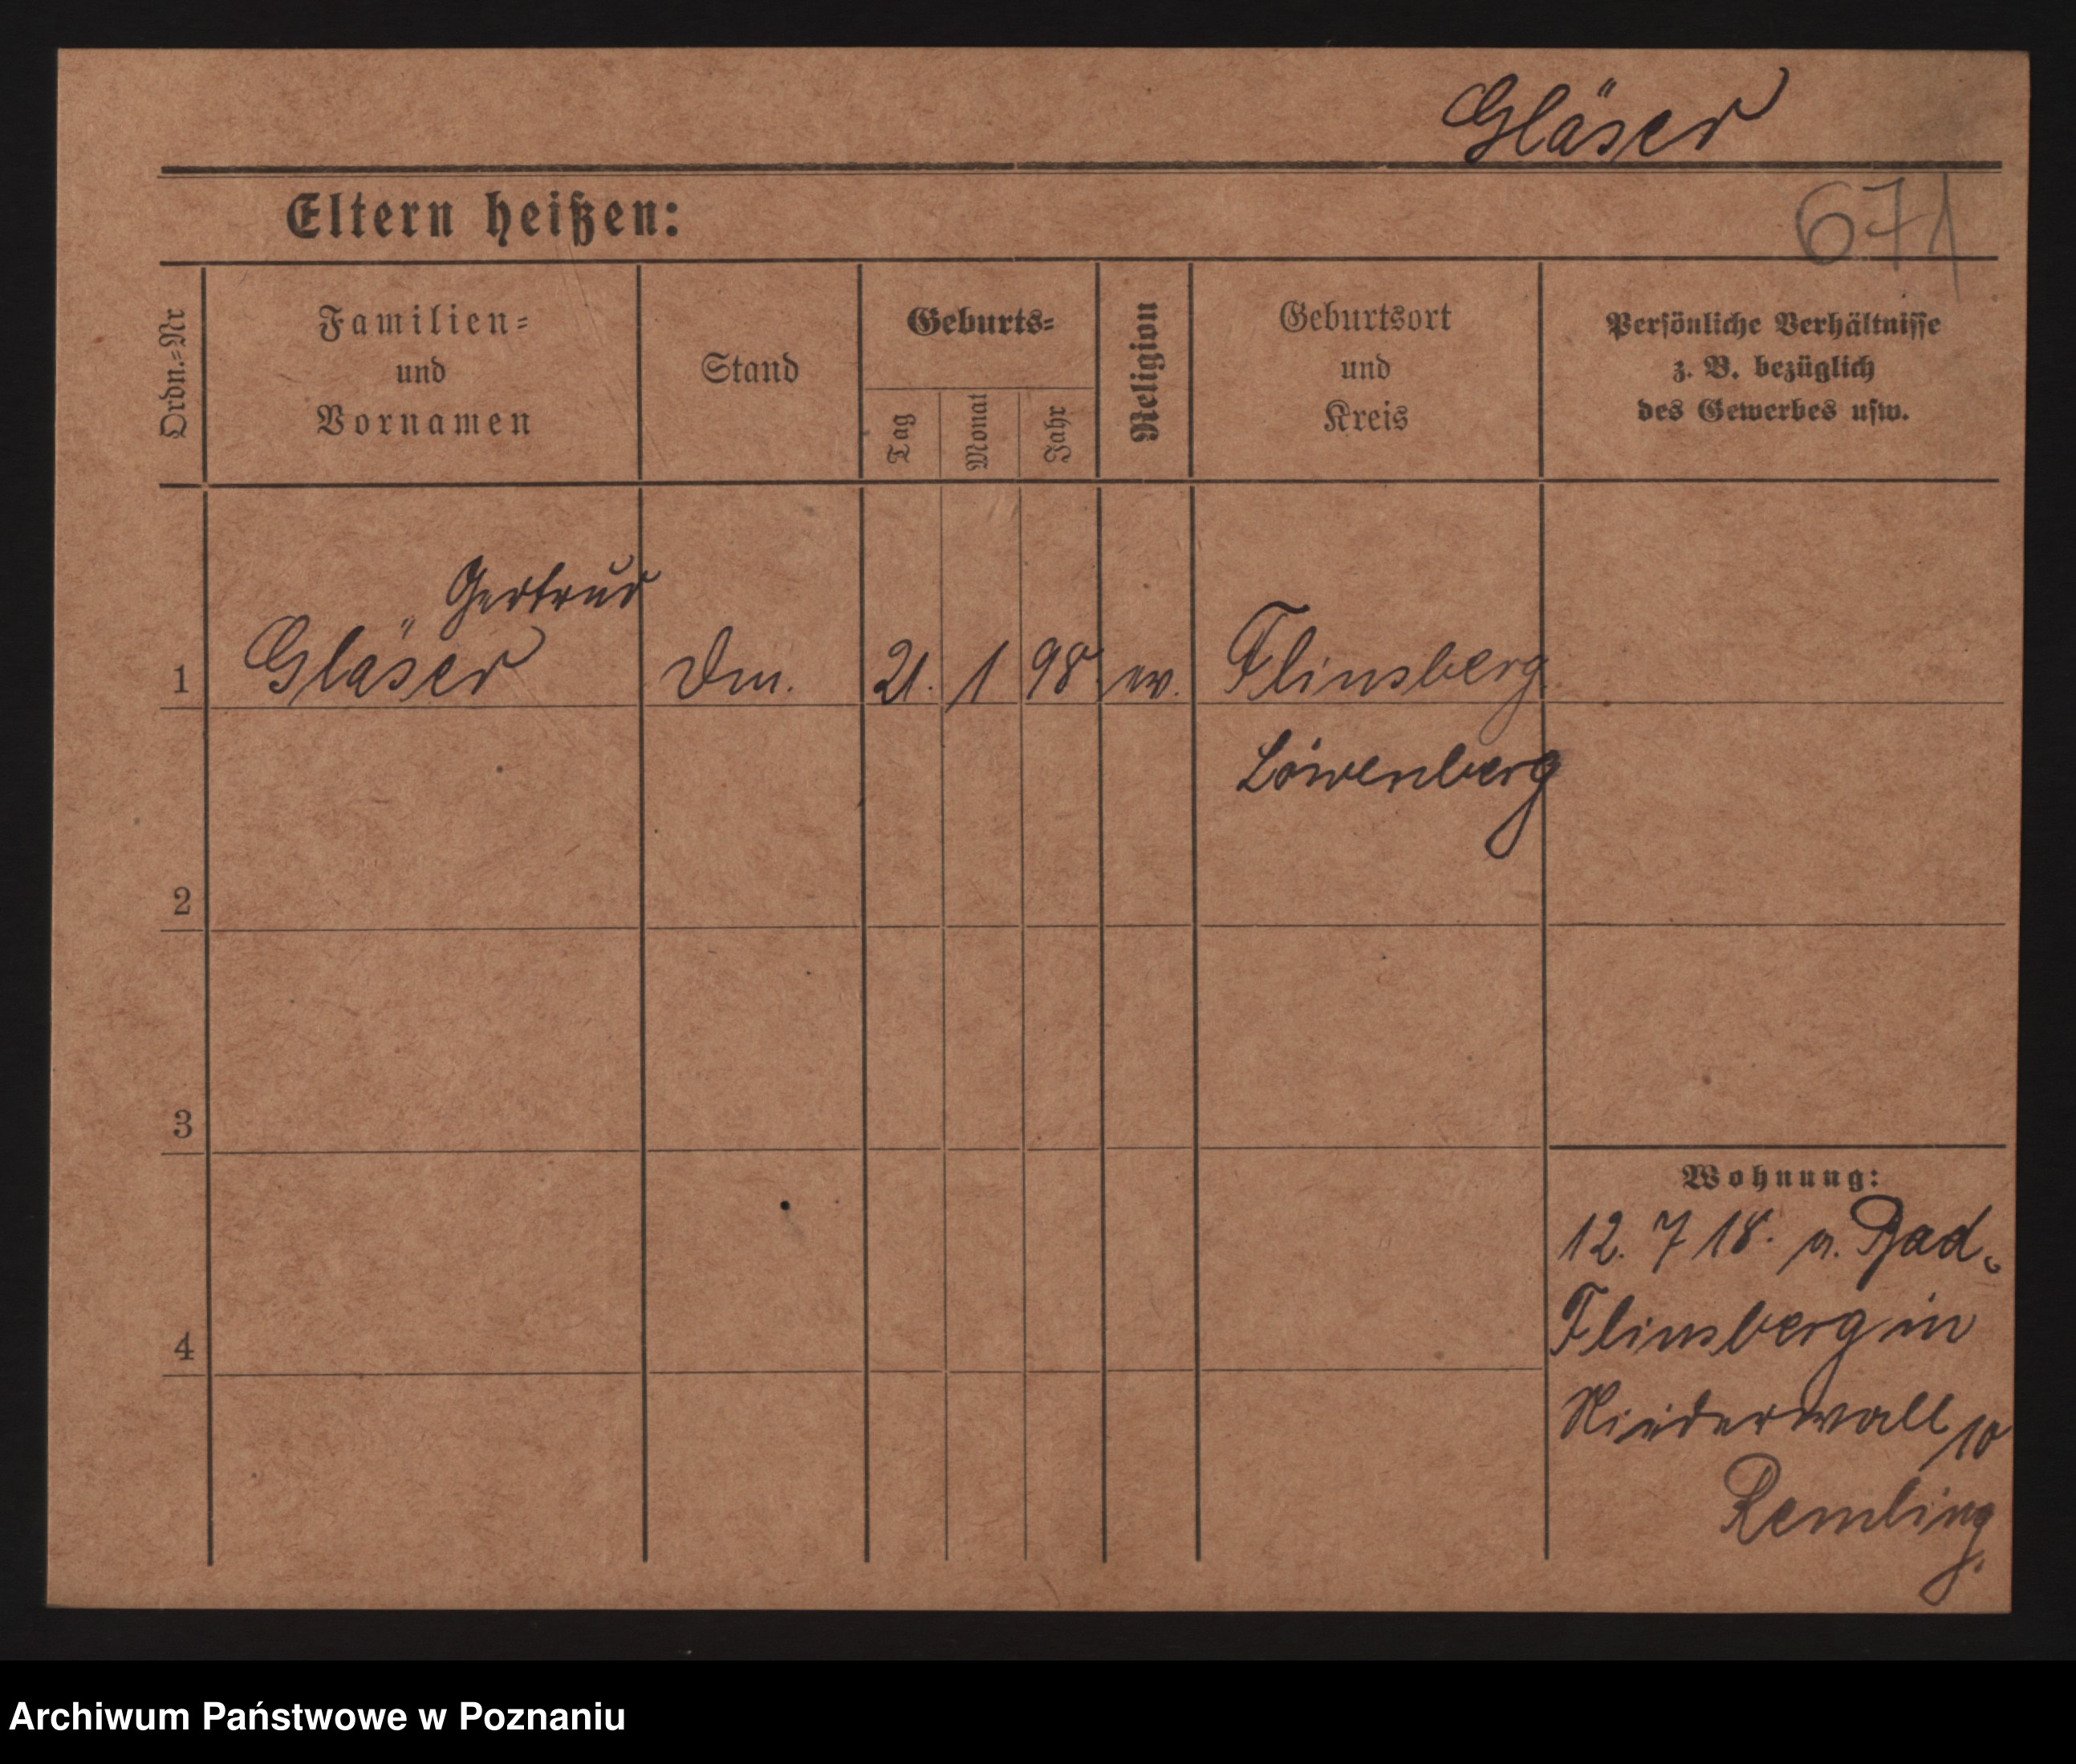 Gläser
671
Eltern heißen:
Ordn.=Nr
Familien=
und
Vornamen
Stand
Geburts=
Tag
Monat
Jahr
Religion
Geburtsort
und
Kreis
Persönliche Verhältnisse
z. B. bezüglich
des Gewerbes usw.
Gertrud
1 Gläser 21. 1 98. ev. Flinsberg
Löwenberg
2
3
4
Wohnung:
12. 7 18. a. Bad-
Flinsberg in
Niederwall 10
Remling.
Archiwum Państwowe w Poznaniu